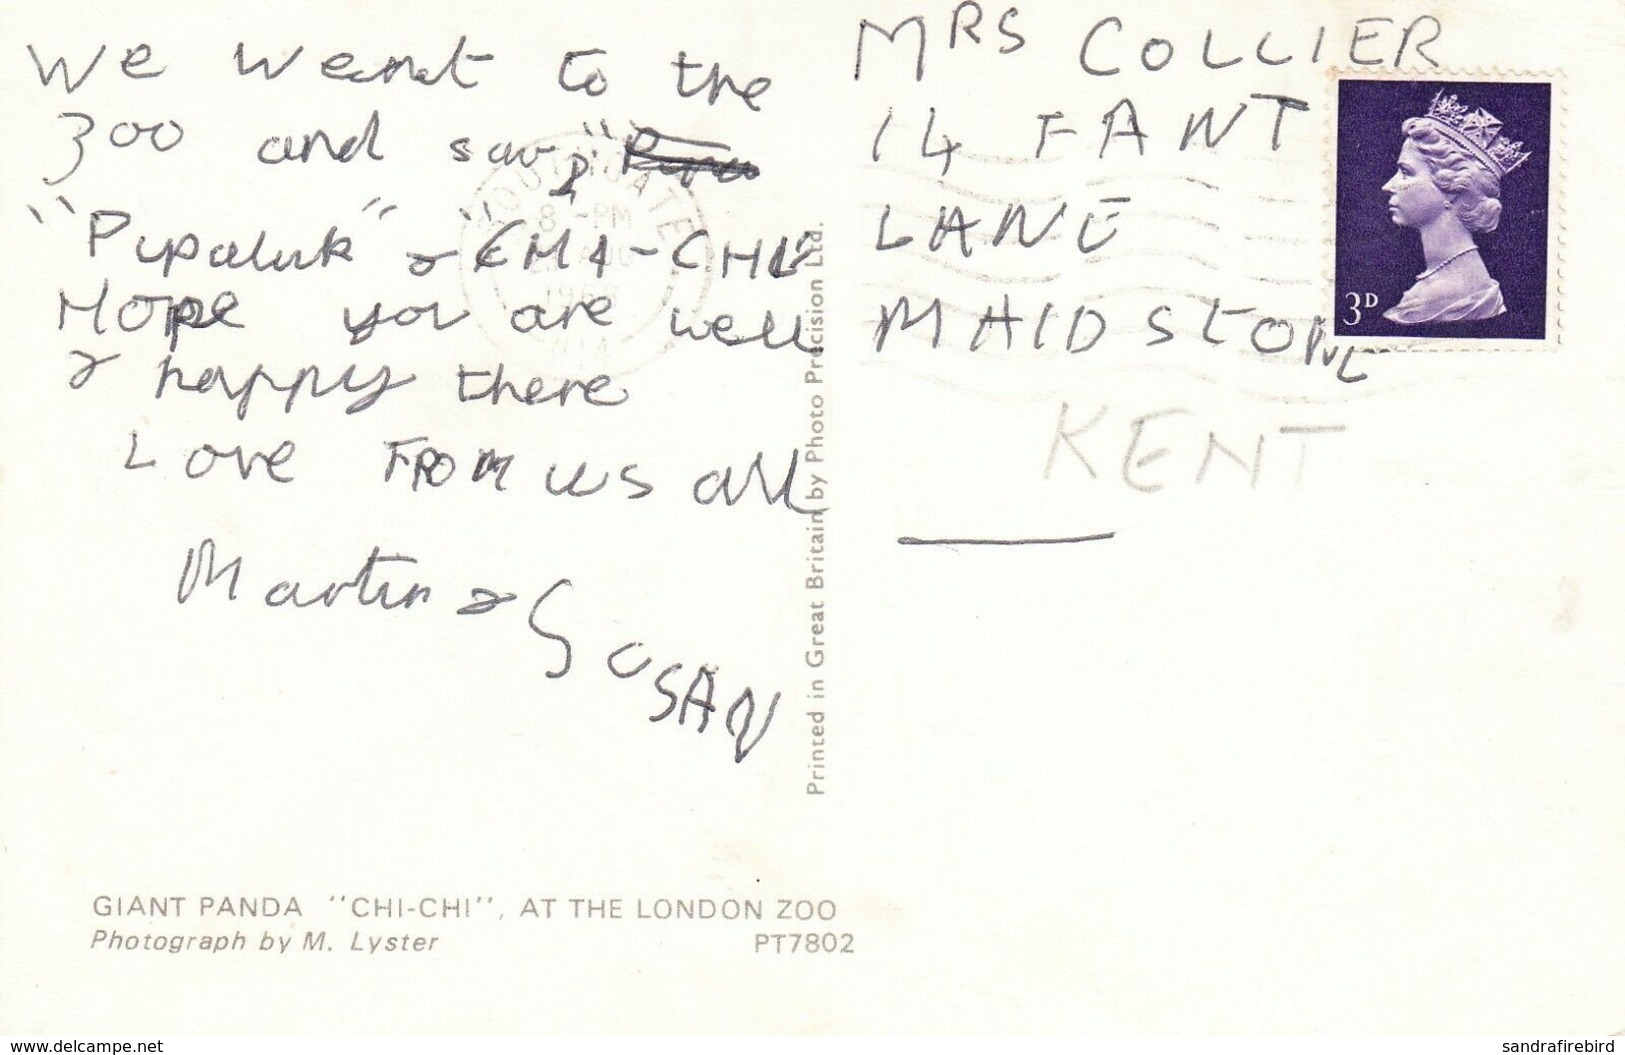 We went to the
zoo and saw
"Pipaluk" & "CHI-CHI"
Hope you are well
& happy there
Love FROM us all
Martin & SUSAN
MRS COLLIER
14 FANT
LANE
MAIDSTONE
KENT
3D
SOUTHGATE
8 -PM
AUG
1968
Printed in Great Britain by Photo Precision Ltd.
GIANT PANDA "CHI-CHI", AT THE LONDON ZOO
Photograph by M. Lyster PT7802
www.delcampe.net
sandrafirebird